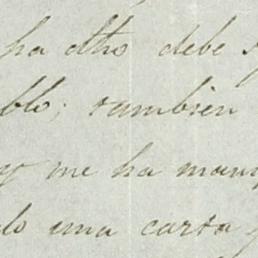 ha dho debe
blo; tambien
y me ha man
do una carta